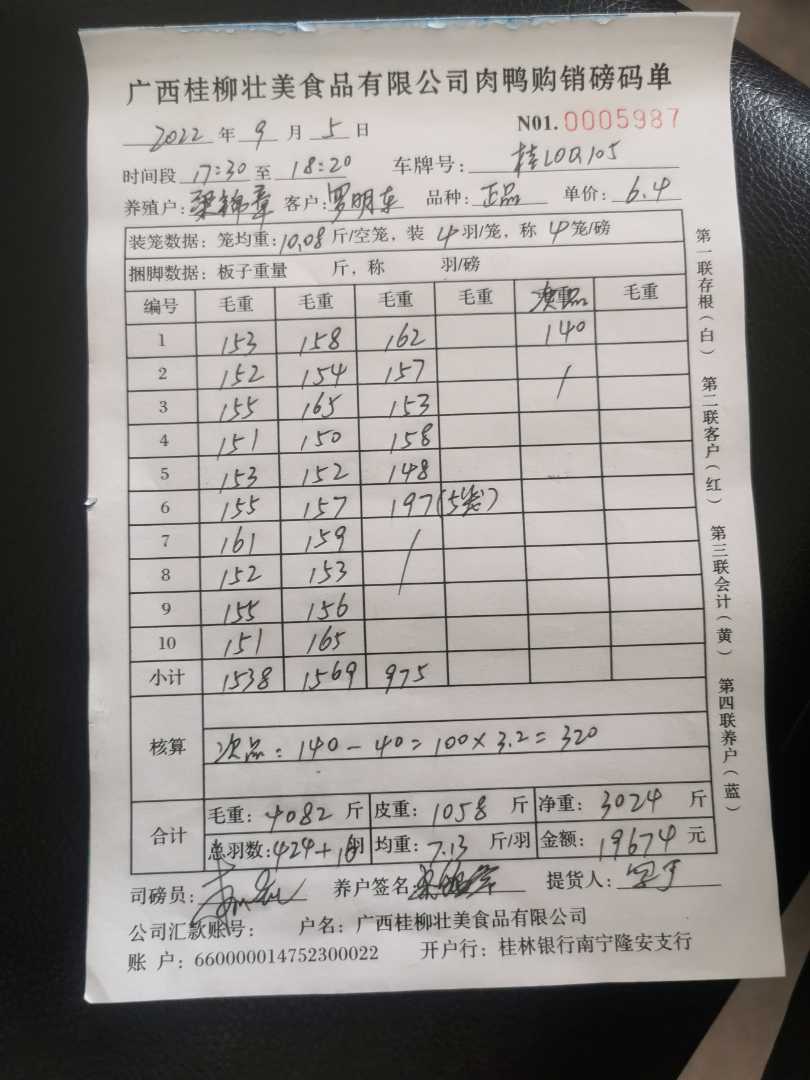 广西桂柳壮美食品有限公司肉鸭购销磅码单
2022 年 9 月 5 日 N01. 0005987
时间段 17:30 至 18:20 车牌号: 桂L0Q105
养殖户: 梁锦章 客户: 罗明东 品种: 正品 单价: 6.4
装笼数据: 笼均重: 10.08 斤/空笼, 装 4 羽/笼, 称 4 笼/磅
捆脚数据: 板子重量 斤, 称 羽/磅
编号 毛重 毛重 毛重 毛重 次品 毛重
1 153 158 162 140
2 152 154 157 /
3 155 165 153
4 151 150 158
5 153 152 148
6 155 157 197(5笼)
7 161 159 /
8 152 153
9 155 156
10 151 165
小计 1538 1569 975
核算 次品: 140-40=100×3.2=320
合计 毛重: 4082 斤 皮重: 1058 斤 净重: 3024 斤
总羽数: 424+16 羽 均重: 7.13 斤/羽 金额: 19674 元
司磅员: 养户签名: 提货人:
公司汇款账号: 户名: 广西桂柳壮美食品有限公司
账 户: 660000014752300022 开户行: 桂林银行南宁隆安支行
第一联存根(白) 第二联客户(红) 第三联会计(黄) 第四联养户(蓝)